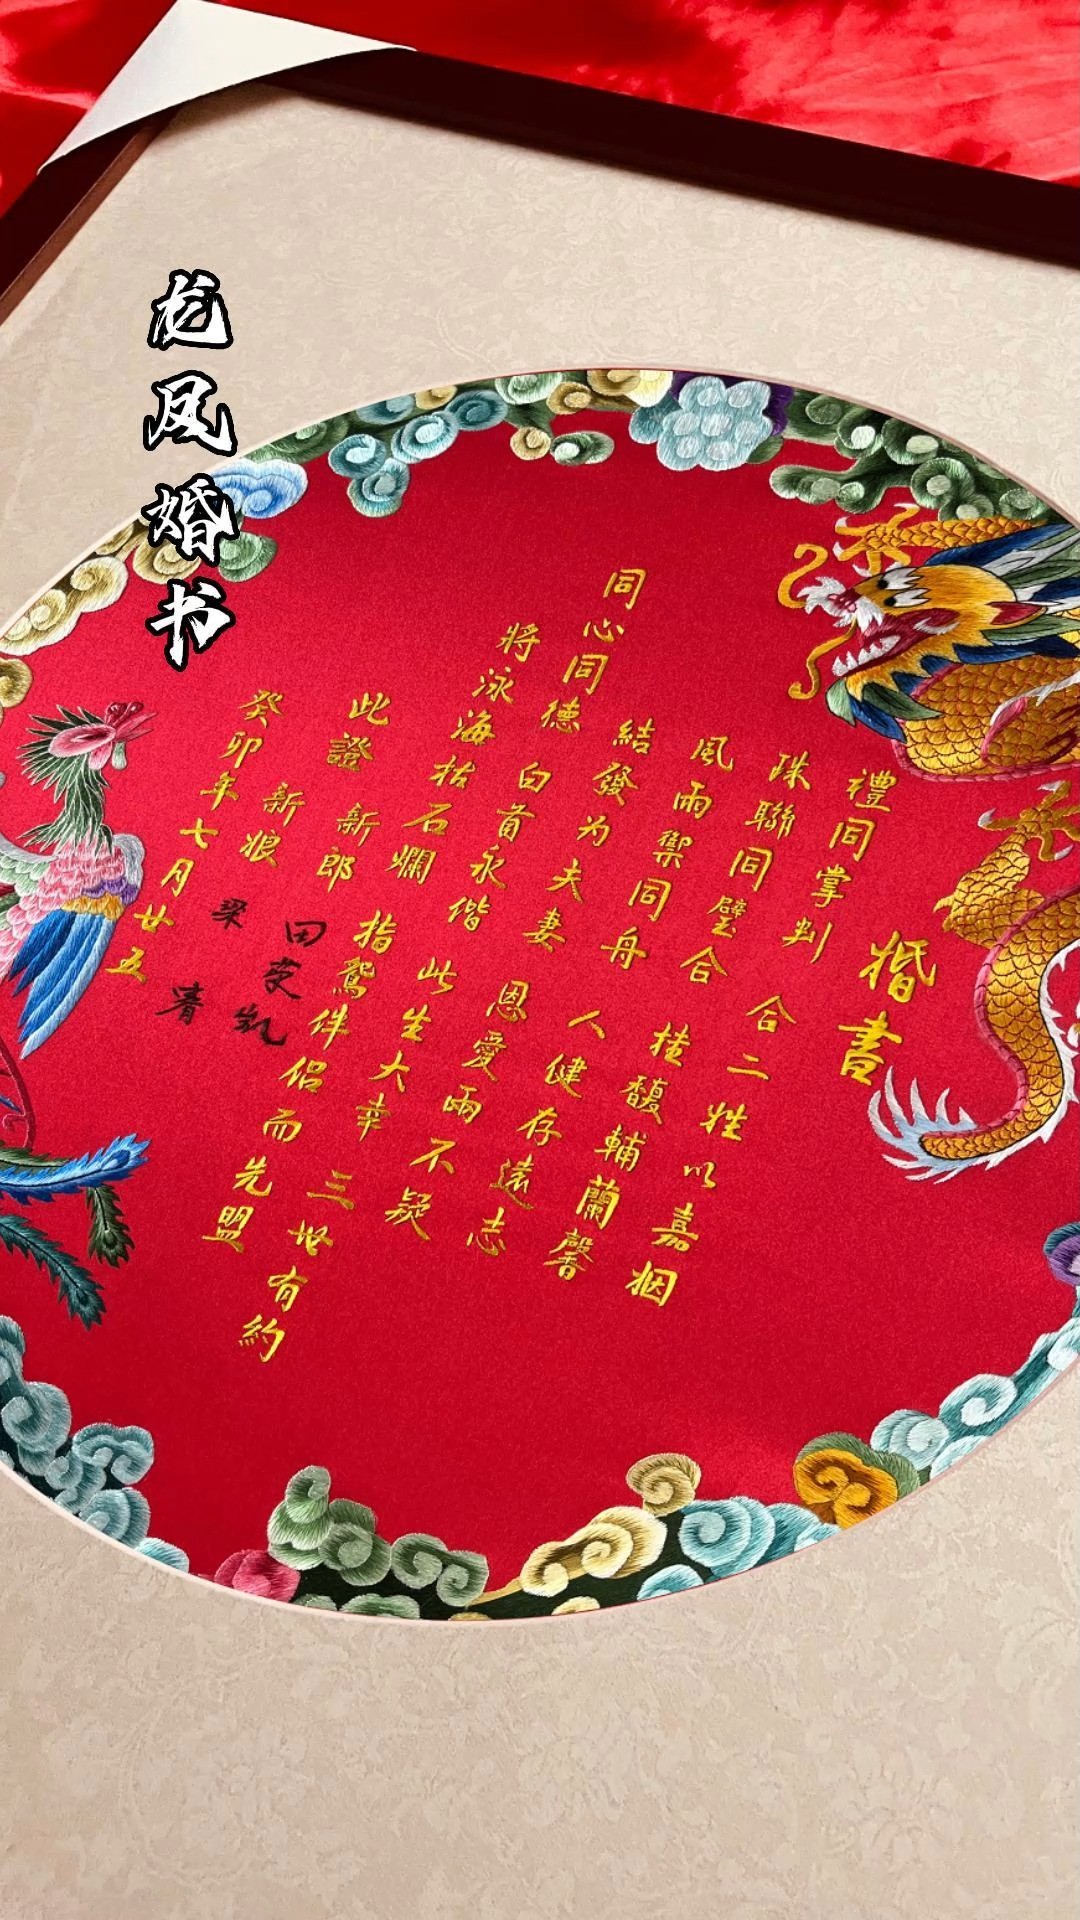 龙凤婚书
婚書
禮同掌判 合二姓以嘉姻
珠聯同璧合 桂馥輔蘭馨
風雨禦同舟 人健存遠志
結發为夫妻 恩愛兩不疑
同心同德 白首永偕 此生大幸 三世有約
將泳海枯石爛 指鴛伴侣而先盟
此證 新郎 田 凯
新娘 梁 清
癸卯年七月廿五